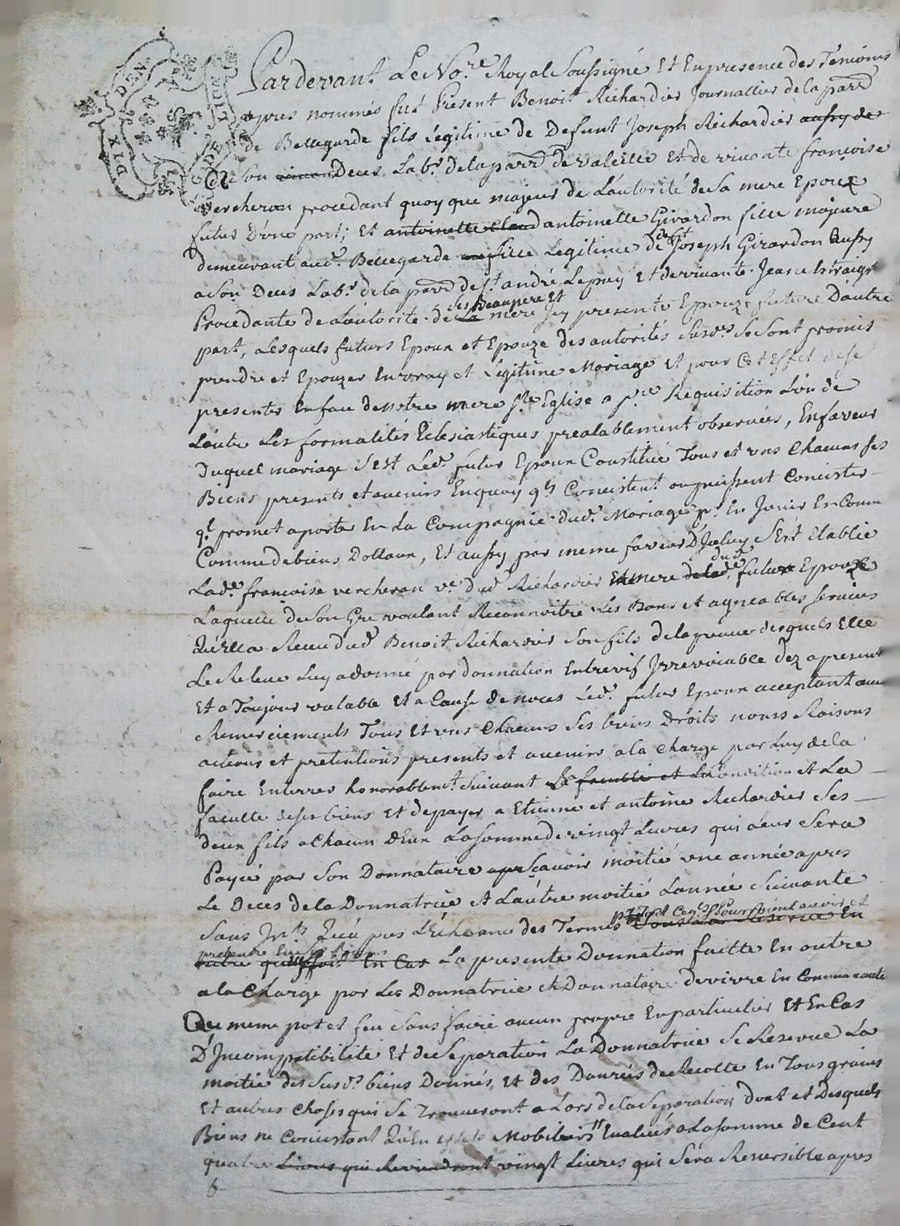 Pardevant Le No.re Royal Soussigné Et En presence des Temoins
apres nommés fut Present Benoit Richardier Journallier de la parr.
de Bellegarde fils Legitime de Defunt Joseph Richardier aussy de
a Son Deces Lab.r de la parr. de valeille Et de vivante françoise
vercheran procedant quoy que majeur de L'autorité de Sa mere Epoux
futur D'une part; Et antoinette Girardon fille majeure
demeurant aud. Bellegarde fille Legitime de def.t Joseph Girardon aussy
a Son Deces Lab.r de la parr. de S.t andré Le puy Et de vivante Jeanne
Procedante de L'autorité de Ses Beaupere Et La mere Icy presente Epouze future D'autre
part, Lesquels futurs Epoux et Epouze des autorités Susd. Se Sont promis
prendre et Epouzer En vray et Legitime Mariage Et pour Cet Effet de se
presenter En face de Notre mere S.te Eglise a p.re Requisition L'un de
L'autre Les formalités Eclesiastiques prealablement observées, En faveur
Duquel mariage S'est Led. futur Epoux Constitué Tous et uns Chacuns Ses
Biens presents et avenirs En quoy q.ls Concistent ou puissent Concister
q.l promet aporter En La Compagnie dud. Mariage p.r En Jouir En Comm
Comme de biens Dottaux, Et aussy par meme faveur D'Iceluy S'est Etablie
Lad. françoise vercheran v.e dud. Richardier Et mere de lad. dud. futur Epoux
Laquelle de Son Gré voulant Reconnoitre Les Bons et agreables Services
Qu'elle a Receu dud. Benoit Richardier Son fils de la preuve desquels Elle
Le Releve Luy a donné par donnation Entrevif Irrevocable Dez a present
Et a Toujour valable Et a Cause de noces Led. futur Epoux acceptant avec
Remerciements Tous Et uns Chacuns Ses biens Droits noms Raisons
actions et pretentions presents et avenirs a la Charge par Luy de la
faire Enterrer honorablem.t Suivant La faculté et Condition Et La
faculté de ses biens Et de payer a Etienne et antoine Richardier Ses
deux fils a Chacun D'Eux La Somme de vingt Livres qui a eux Sera
Payée par Son Donnataire Scavoir moitié une année apres
Le Deces de la Donnatrice Et L'autre moitié L'année Suivante
Sans Jnt.s Qu'apres L'Echeance des Termes
La presente Donnation faitte En outre
a la Charge par Les Donnatrice Et Donnataire de vivre En Communauté
Au meme pot et feu Sans faire aucun propre En particulier Et En Cas
D'Incompatibilité Et de Separation La Donnatrice Se Reserve La
moitié des Susd. biens Donnés, Et des Danrées de Recolte En Tous grains
Et autres Choses qui Se Trouveront a Lors de la Separation Dont et Desquels
Biens ne Concistant Qu'En Effets Mobiliers Evalués a La Somme de Cent
quatre Livres qui Reviendront vingt Livres qui Sera Reversible apres